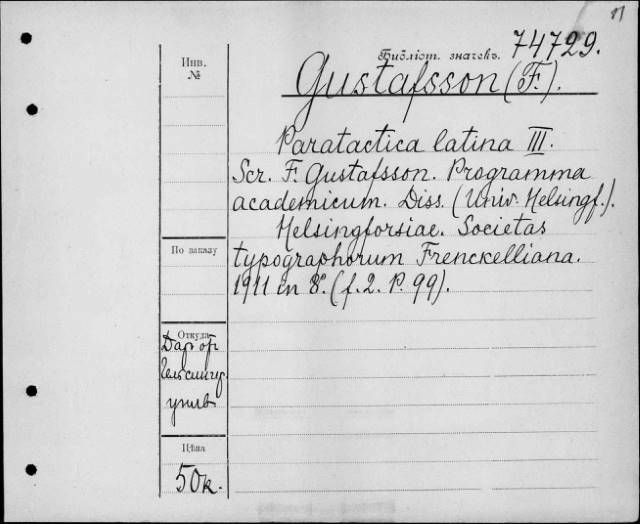 Библіот. значекъ. 74729.
Gustafsson (F.).
Инв.
№
Paratactica latina III.
Scr. F. Gustafsson. Programma
academicum. Diss. (Univ. Helsingf.).
Helsingforsiae. Societas
typographorum Frenckelliana.
1911 in 8º. (f. 2. P. 99).
По заказу
Откуда
Даръ от
Гельсингф.
унив
Цѣна
50к.